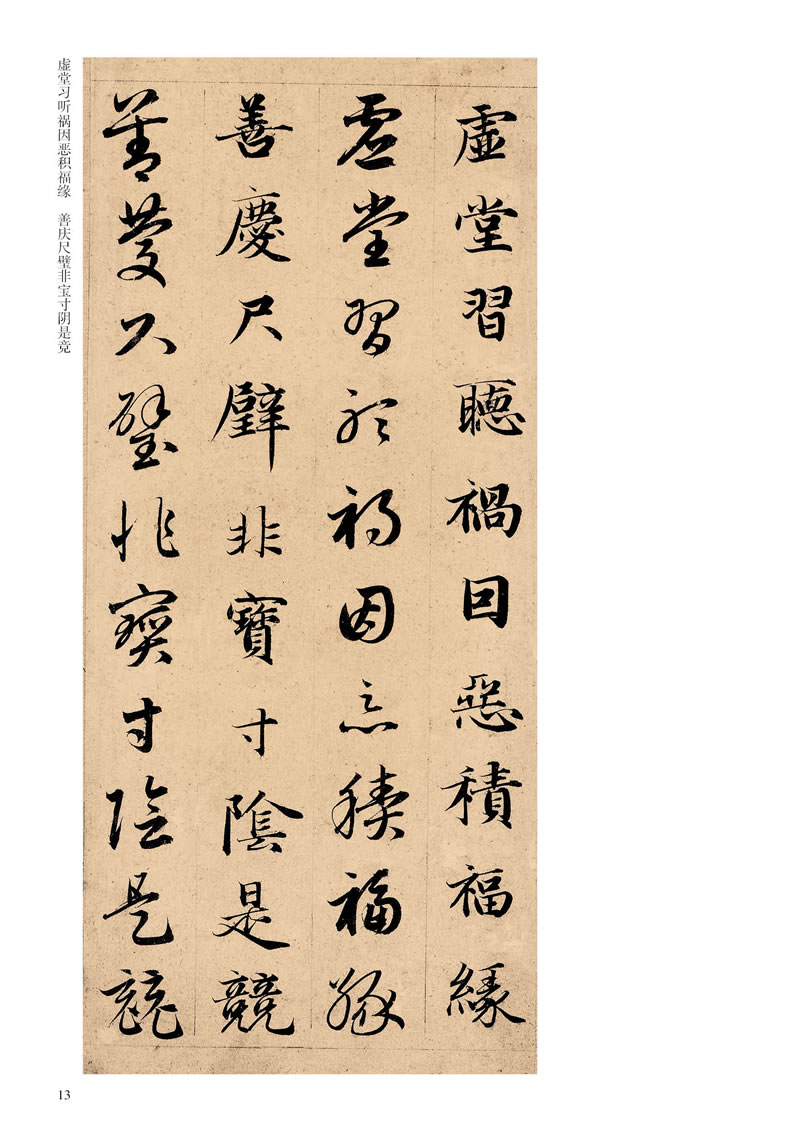 虚堂习听祸因恶积福缘　善庆尺璧非宝寸阴是竞
虛堂習聽禍因惡積福緣
虛堂習聽禍因惡積福緣
善慶尺璧非寶寸陰是競
善慶尺璧非寶寸陰是競
13